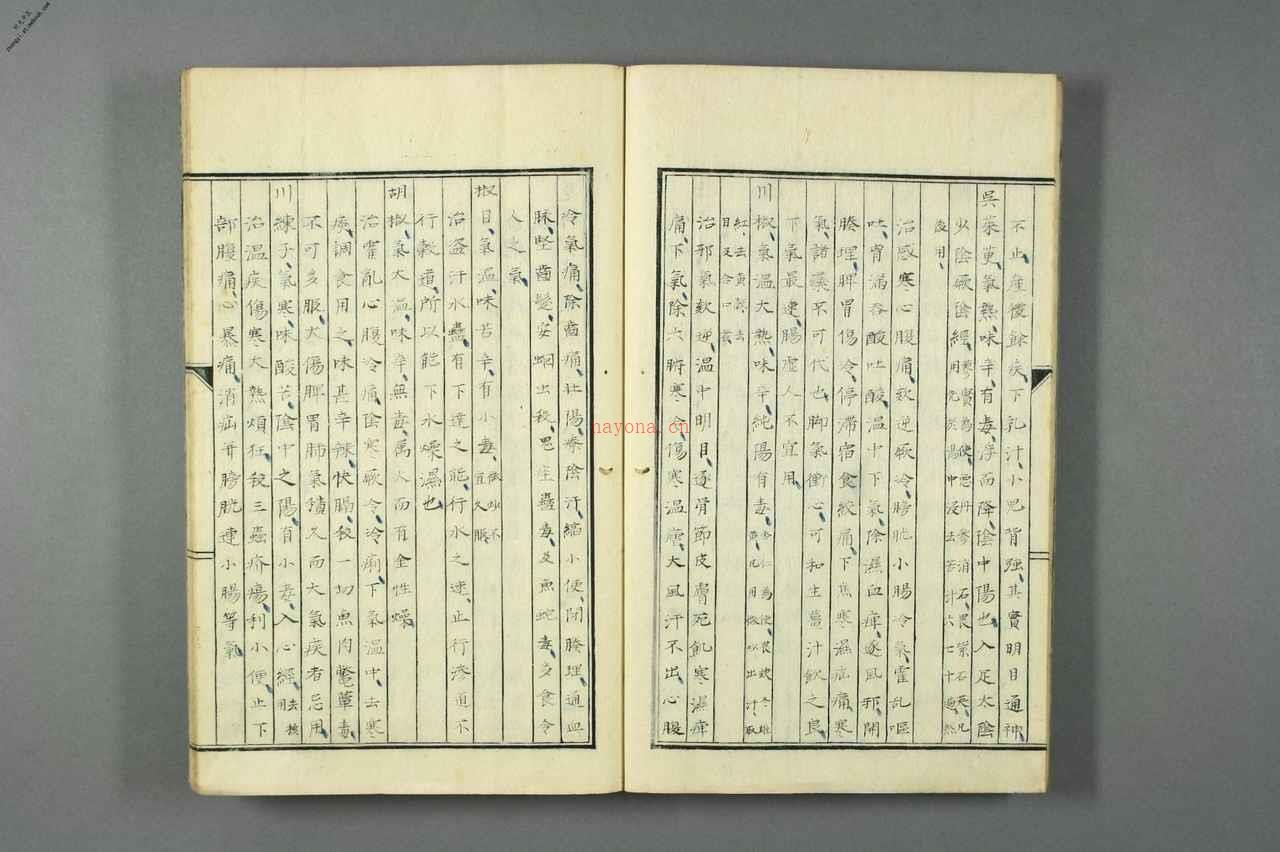 不止、産後餘疾、下乳汁、小兒背强、其實明目通神、
吳茱萸、氣熱、味辛、有毒、浮而降、陰中陽也、入足太陰
少陰厥陰經、蓼實為使、惡丹參消石、畏紫石英、凡
用先於湯中浸去苦汁六七十遍然
後用、
治感寒心腹痛、欬逆厥冷、膀胱小腸冷氣、霍乱嘔
吐、胃滿吞酸吐酸、温中下氣、除濕血痺、逐風邪、開
腠理、脾胃傷冷、停滯宿食絞痛、下焦寒濕疝痛、寒
氣諸藥不可代也、脚氣衝心、可和生薑汁飲之良、
下氣最速、腸虛人不宜用、
川椒、氣温大熱、味辛、純陽有毒、杏仁為使、畏欵冬雄
黄、凡用微炒出汁、取
紅、去黄殼、去
目及合口者
治邪氣欬逆、温中明目、逐骨節皮膚死飢寒濕痺
痛、下氣、除六腑寒冷、傷寒温瘧、大風汗不出、心腹
冷氣痛、除齒痛、壯陽、療陰汗、縮小便、閉腠理、通血
脉、堅齒髮、安蛔出殺、鬼疰蠱毒、及魚蛇毒、多食令
人乏氣、
椒目、氣温、味苦辛、有小毒、微炒不
宜久服
治盗汗水蠱、有下達之能、行水之速、止行滲道不
行穀道、所以能下水燥濕也
胡椒、氣大温、味辛、無毒、属火而有金性燥、
治霍亂心腹冷痛、陰寒厥冷、冷痢、下氣温中、去寒
痰、調食用之、味甚辛辣、快膈、殺一切魚肉鼈蕈毒、
不可多服、大傷脾胃肺氣、積久而大氣疾者忌用、
川練子、氣寒、味酸苦、陰中之陽、有小毒、入心經、去核
用
治温疾傷寒大熱煩狂、殺三蟲疥瘍、利小便、止下
部腹痛、心暴痛、消疝并膀胱連小腸等氣、
nayona.cn